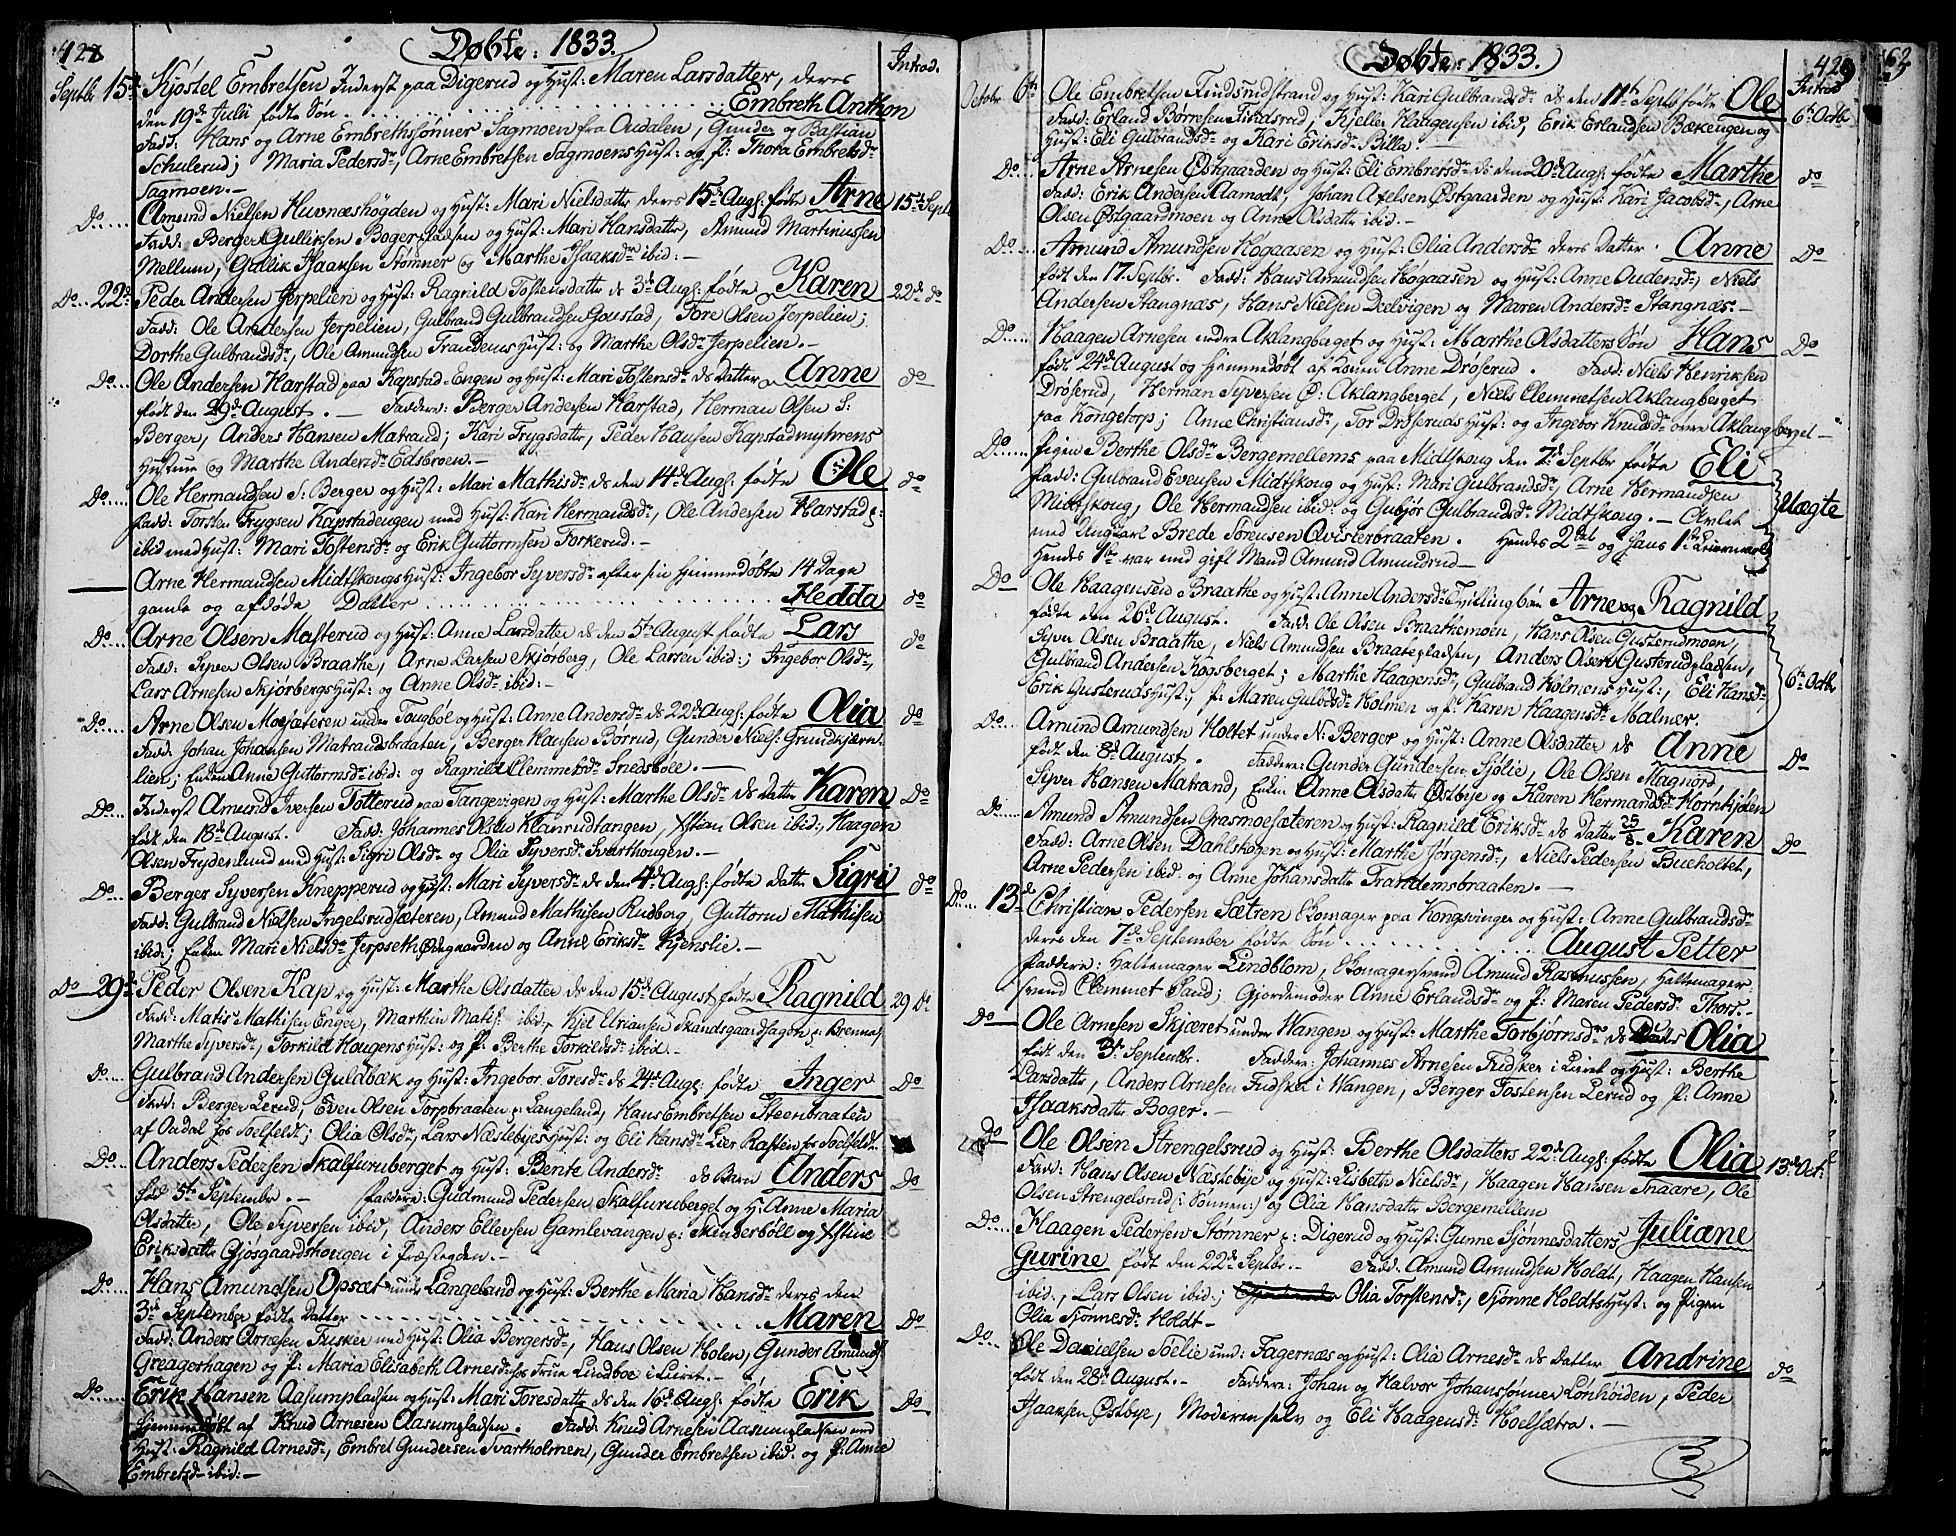 428 Døbte: 1833. Introd.
Septbr 15de Kjøstel Embretsen Inderst paa Digerud og Hust: Maren Larsdatter, deres
den 19de Julii fødte Søn Embreth Anthon
Fadd: Hans og Arne Embrethsønner Sagmoen fra Oudalen, Gunder og Bastian
Schulerud; Maria Pedersdr, Arne Embretsen Sagmoens Hust: og P: Thora Embretsdr
Sagmoen.-
Do Amund Nielsen Huvnæshögden og Hust: Mari Nielsdatter deres 15de Augs: fødte Arne 15de Septb
Fadd: Berger Gulliksen Bogerpladsen og Hust: Mari Hansdatter, Amund Martinussen
Mellum, Gullik Isaaksen Stømner og Marthe Isaaksdr ibid:-
Do 22de Peder Andersen Jerpelien og Hust: Ragnild Tostensdatter ds 3de Augs: fødte Karen 22de do
Fadd: Ole Andersen Jerpelien, Gulbrand Gulbrandsen Goustad, Tore Olsen Jerpelien;
Dorthe Gulbrandsdr, Ole Amundsen Trandems Hust: og Marthe Olsdr Jerpelien.-
Do Ole Andersen Harstad paa Kapstad-Engen og Hust: Mari Tostensdr ds Datter Anne do
født den 29de August.- Faddere: Berger Andersen Harstad, Herman Olsen S:
Berger, Anders Hansen Matrand; Kari Trygsdatter, Peder Hansen Kapstadmyhrens
Hustrue og Marthe Andersdr Edsbroen.-
Do Ole Hermandsen S: Berger og Hust: Mari Mathisdr ds den 14de Augs: fødte Ole do
Fadd: Torsten Trygsen Kapstadengen med Hust: Kari Hermandsdr, Ole Andersen Harstad p:
ibid med Hust: Mari Tostensdr og Erik Guttormsen Torkerud.-
Arne Hermandsen Midtskougs Hust: Ingebor Syversdr efter sin hjemmedøbte 14 Dage
gamle og afdøde Datter Hedda do
Do Arne Olsen Masterud og Hust: Anne Larsdatter ds den 5te August fødte Lars do
Fadd: Syver Olsen Braathe, Arne Larsen Skjørberg, Ole Larsen ibid:; Ingebor Olsdr,
Lars Arnesen Skjørbergs Hust: og Anne Olsdr ibid:-
Do Arne Olsen Mosjæteren under Tougbøl og Hust: Anne Andersdr ds 22de Augs: fødte Olia do
Fadd: Johan Johansen Matrandsbraaten, Berger Hansen Børrud, Gunder Niels: Grundkjærn-
lien; Enken Anne Guttormsdr ibid: og Ragnild Clemmetsdr Snedsbøll.-
Do Inderst Amund Iversen Tøtterud paa Tangevigen og Hust: Marthe Olsdr ds Datter Karen Do
født den 18de August. Fadd: Johannes Olsen Klanrudtangen, Xstian Olsen ibid:, Haagen
Olsen Frydenlund med Hust: Sigri Olsdr og Olia Syversdr Svarthougen.-
Do Berger Syversen Knepperud og Hust: Mari Syversdr ds den 4de Augs: fødte Datter Sigri do
Fadd: Gulbrand Nielsen Ingelsrudsæteren, Amund Mathisen Rudberg, Guttorm Mathisen
ibid:; Enken Mari Nielsdr Jerpseth Ødegaarden og Anne Eriksdr Kjenslie.-
Do 29de Peder Olsen Kap og Hust: Marthe Olsdatter ds den 15de August fødte Ragnild 29 Do
Fadd: Matis Mathisen Enger, Marthin Matis: ibid:, Kjel Uriansen Skandsgaardsagen p: Brennas
Marthe Syversdr, Torkild Hougens Hust: og P: Berthe Torkildsdr ibid.-
Do Gulbrand Andersen Guldbæk og Hust: Ingebor Toresdr ds 24de Augs: fødte Inger Do
Fadd: Berger Lerud, Even Olsen Torpbraaten p: Langeland, Hans Embretsen Steenbraaten
af Oudal hos Foelfeldt; Olia Olsdr, Lars Næstebyes Hust: og Eli Hansdr Lier Rasten hos Foelfeldt
Do Anders Pedersen Skalfuruberget og Hust: Bente Andersdr ds Barn Anders Do
fød 5te Septembr.- Faddere: Gudmund Pedersen Skalfuruberget og H: Anne Maria
Olsdatter, Ole Syversen ibid, Anders Ellevsen Gamlevangen p: Skinderbøll og Xstine
Eriksdatter Gjøsgaardshougen i Præstegden.-
Do Hans Amundsen Opsæt under Langeland og Hust: Berthe Maria Hansdr deres den
3de September fødte Datter Maren Do
Fadd: Anders Arnesen Fusker med Hust: Olia Bergersdr, Hans Olsen Holen, Gunder Amunds:
Greagershagen og P: Maria Elisabeth Arnesdr hos Frue Lindboe i Leiret.-
Do Erik Hansen Aasumpladsen og Hust: Mari Toresdatter ds den 16de Augs: fødte Erik Do
hjemmedøbt af Knud Arnesen Aasumpladsen. Fadd: Knud Arnesen Aasumpladsen med
Hust: Ragnild Arnesdr, Embret Gundersen Svartholmen, Gunder Embretsen ibid: og P: Anne
Embretsdr ibid:-
Døbte: 1833. 429 Introd
Octobr 6te Ole Embretsen Findsrudstrand og Hust: Kari Gulbrandsdr ds den 11te Septb fødte Ole 6te Octbr
Fadd: Erland Børresen Findsrud, Kjeller Haagensen ibid, Erik Erlandsen Bækengen og
Hust: Eli Gulbrandsdr og Kari Eriksdr Billa
Do Arne Arnesen Østgaarden og Hust: Eli Embretsdr ds den 20de Augs: fødte Marthe do
Fadd: Erik Andersen Aamodt, Johan Axelsen Østgaarden og Hust: Kari Jacobsdr, Arne
Olsen Østgaardmoen og Anne Olsdatter ibid:-
Do Amund Amundsen Høgaasen og Hust: Olia Andersdr deres Datter Anne Do
født den 17. Septbr. Fadd: Hans Amundsen Høgaasen og Hust: Anne Oudensdr, Niels
Andersen Stangnæs, Hans Nielsen Deelvigen og Maren Andersdr Stangnæs.-
Do Haagen Arnesen nedre Aklangbaget og Hust: Marthe Olsdatters Søn Hans Do
født 24de August og hjemmedøbt af Konen Anne Drøserud. Fadd: Niels Henriksen
Drøserud, Herman Syversen Ø: Aklangberget, Niels Clemmetsen Aklangberget
paa Kongetorp; Anne Christiansdr, Tor Drøseruds Hust: og Ingebor Knudsdr øvre Aklangberget-
Do Pigen Berthe Olsdr Bergemellems paa Midtskoug den 7de Septbr fødte Eli
Fadd: Gulbrand Evensen Midtskoug og Hust: Mari Gulbrandsdr, Arne Hermandsen
Midtskoug, Ole Hermandsen ibid: og Gubjør Gulbrandsdr Midtskoug.- Avlet Uægte
med Ungkarl Brede Torensen Qvisterbraaten. Hendes 2det og hans 1ste Leiermaal
Hendes 1ste var med gift Mand Amund Amundrud-
Do Ole Haagensen Braathe og Hust: Anne Andersdr Tvillingbørn Arne og Ragnild
fødte den 26de August. Fadd: Ole Olsen Braathemoen, Hans Olsen Gusterudmoen,
Syver Olsen Braathe, Niels Amundsen Braatepladsen, Anders Olsen Gusterudpladsen,
Gulbrand Andersen Kogsberget; Marthe Haagensdr, Gulbrand Holmens Hust:, Eli Hansdr, 6te Octbr
Erik Gusteruds Hust:, P: Maren Gulbdsdr Holmen og P: Karen Haagensdr Malmer.
Do Amund Amundsen Holtet under N: Berger og Hust: Anne Olsdatter ds Anne Do
født den 8de August. Faddere: Gunder Gundersen Sjølie, Ole Olsen Magnord,
Syver Hansen Matrand, Enken Anne Olsdatter Østbye og Karen Hermandsdr Hornkjølen
Do Amund Amundsen Grasmoesæteren og Hust: Ragnild Eriksdr ds Datter 25/8 Karen Do
Fadd: Arne Olsen Dahlshagen og Hust: Marthe Jørgensdr, Niels Pedersen Bueholtet,
Arne Pedersen ibid: og Anne Johansdatter Trandemsbraaten.-
Do 13de Christian Pedersen Sætren Skomager paa Kongsvinger og Hust: Anne Gulbrandsdr
deres den 7de September fødte Søn August Petter
Faddere: Hattemager Lindblom, Skomagersvend Amund Rasmussen, Hattemager-
svend Clemmet Sand; Gjordemoder Anne Erlandsdr og P: Maren Pedersdr Thors.-
Do Ole Arnesen Skjæret under Vangen og Hust: Marthe Torbjørnsdr ds Olia
født den 3de Septembr. Faddere: Johannes Arnesen Fusker i Leiret og Hust: Berthe
Larsdatter, Anders Arnesen Fusker i Vangen, Berger Tostensen Lerud og P: Anne
Isaaksdatter Boger.-
Do Ole Olsen Strengelsrud og Hust: Berthe Olsdatters 22de Augs: fødte Olia 13de Octb
Fadd: Hans Olsen Næstebye og Hust: Lisbeth Nielsdr, Haagen Hansen Snaare, Ole
Olsen Strengelsrud (: Sønnen:) og Olia Hansdatter Bergemellem
Do Haagen Pedersen Stømner p: Digerud og Hust: Gunne Sjønnesdatters Juliane
Gurine født den 22de Septbr.- Fadd: Amund Amundsen Holdt, Haagen Hansen
ibid:, Lars Olsen ibid:; Olia Torstensdr, Sjønne Holdts Hust: og Pigen
Olia Sjønnesdr Holdt-
Do Ole Danielsen Foelie und: Fagernæs og Hust: Olia Arnesdr ds Datter Andrine do
født den 28de August.- Faddere: Johan og Halvor Johansønner Lønhøiden, Peder
Isaaksen Østbye, Moderen selv og Eli Haagensdr Hoelsætra.-